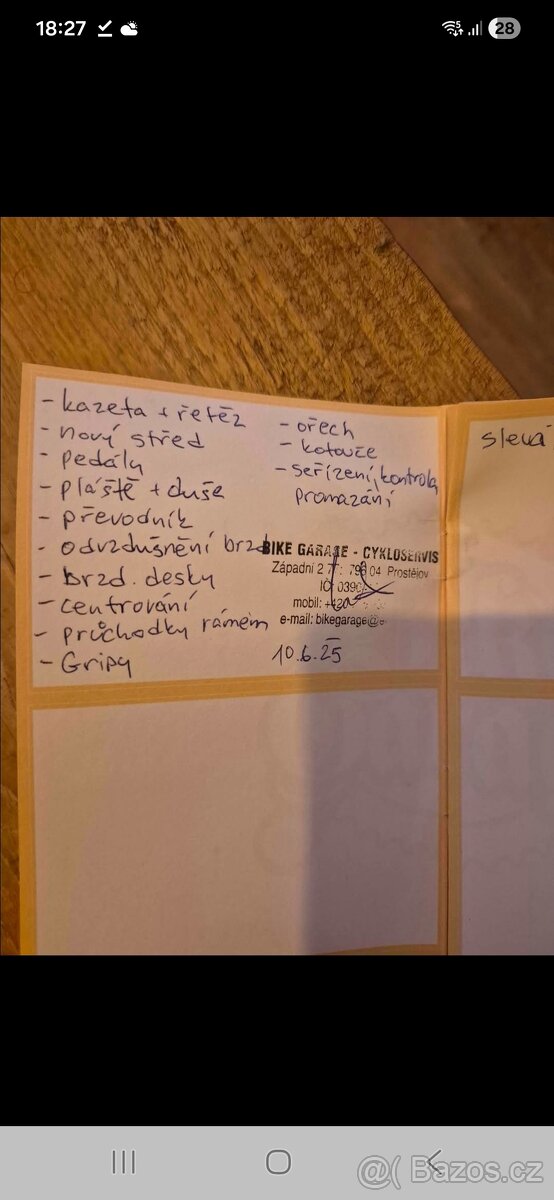 18:27
28
- kazeta + řetěz
- nový střed
- pedály
- pláště + duše
- převodník
- odvzdušnění brzd
- brzd. desky
- centrování
- průchodky rámem
- Gripy
- ořech
- kotouče
- seřízení, kontrola,
promazání
BIKE GARAGE - CYKLOSERVIS
Západní 2 : 796 04 Prostějov
IČ 0390
mobil: +420
e-mail: bikegarage@
10.6.25
slevá
@( Bazos.cz